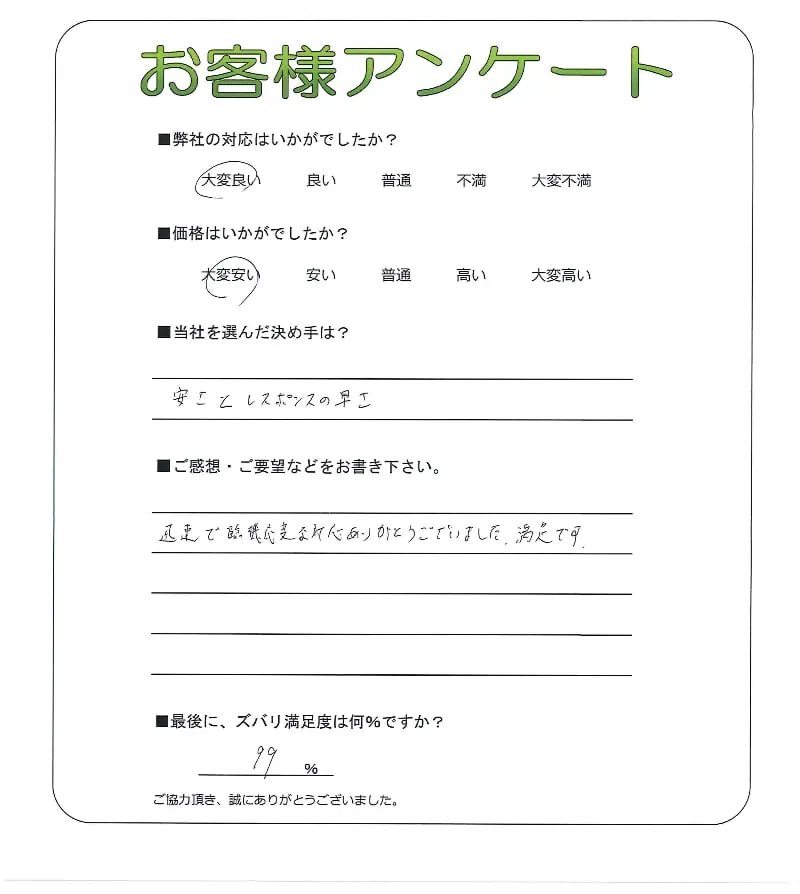 お客様アンケート
■弊社の対応はいかがでしたか？
大変良い 良い 普通 不満 大変不満
■価格はいかがでしたか？
大変安い 安い 普通 高い 大変高い
■当社を選んだ決め手は？
安さとレスポンスの早さ
■ご感想・ご要望などをお書き下さい。
迅速で臨機応変な対応ありがとうございました。満足です。
■最後に、ズバリ満足度は何%ですか？
99 %
ご協力頂き、誠にありがとうございました。